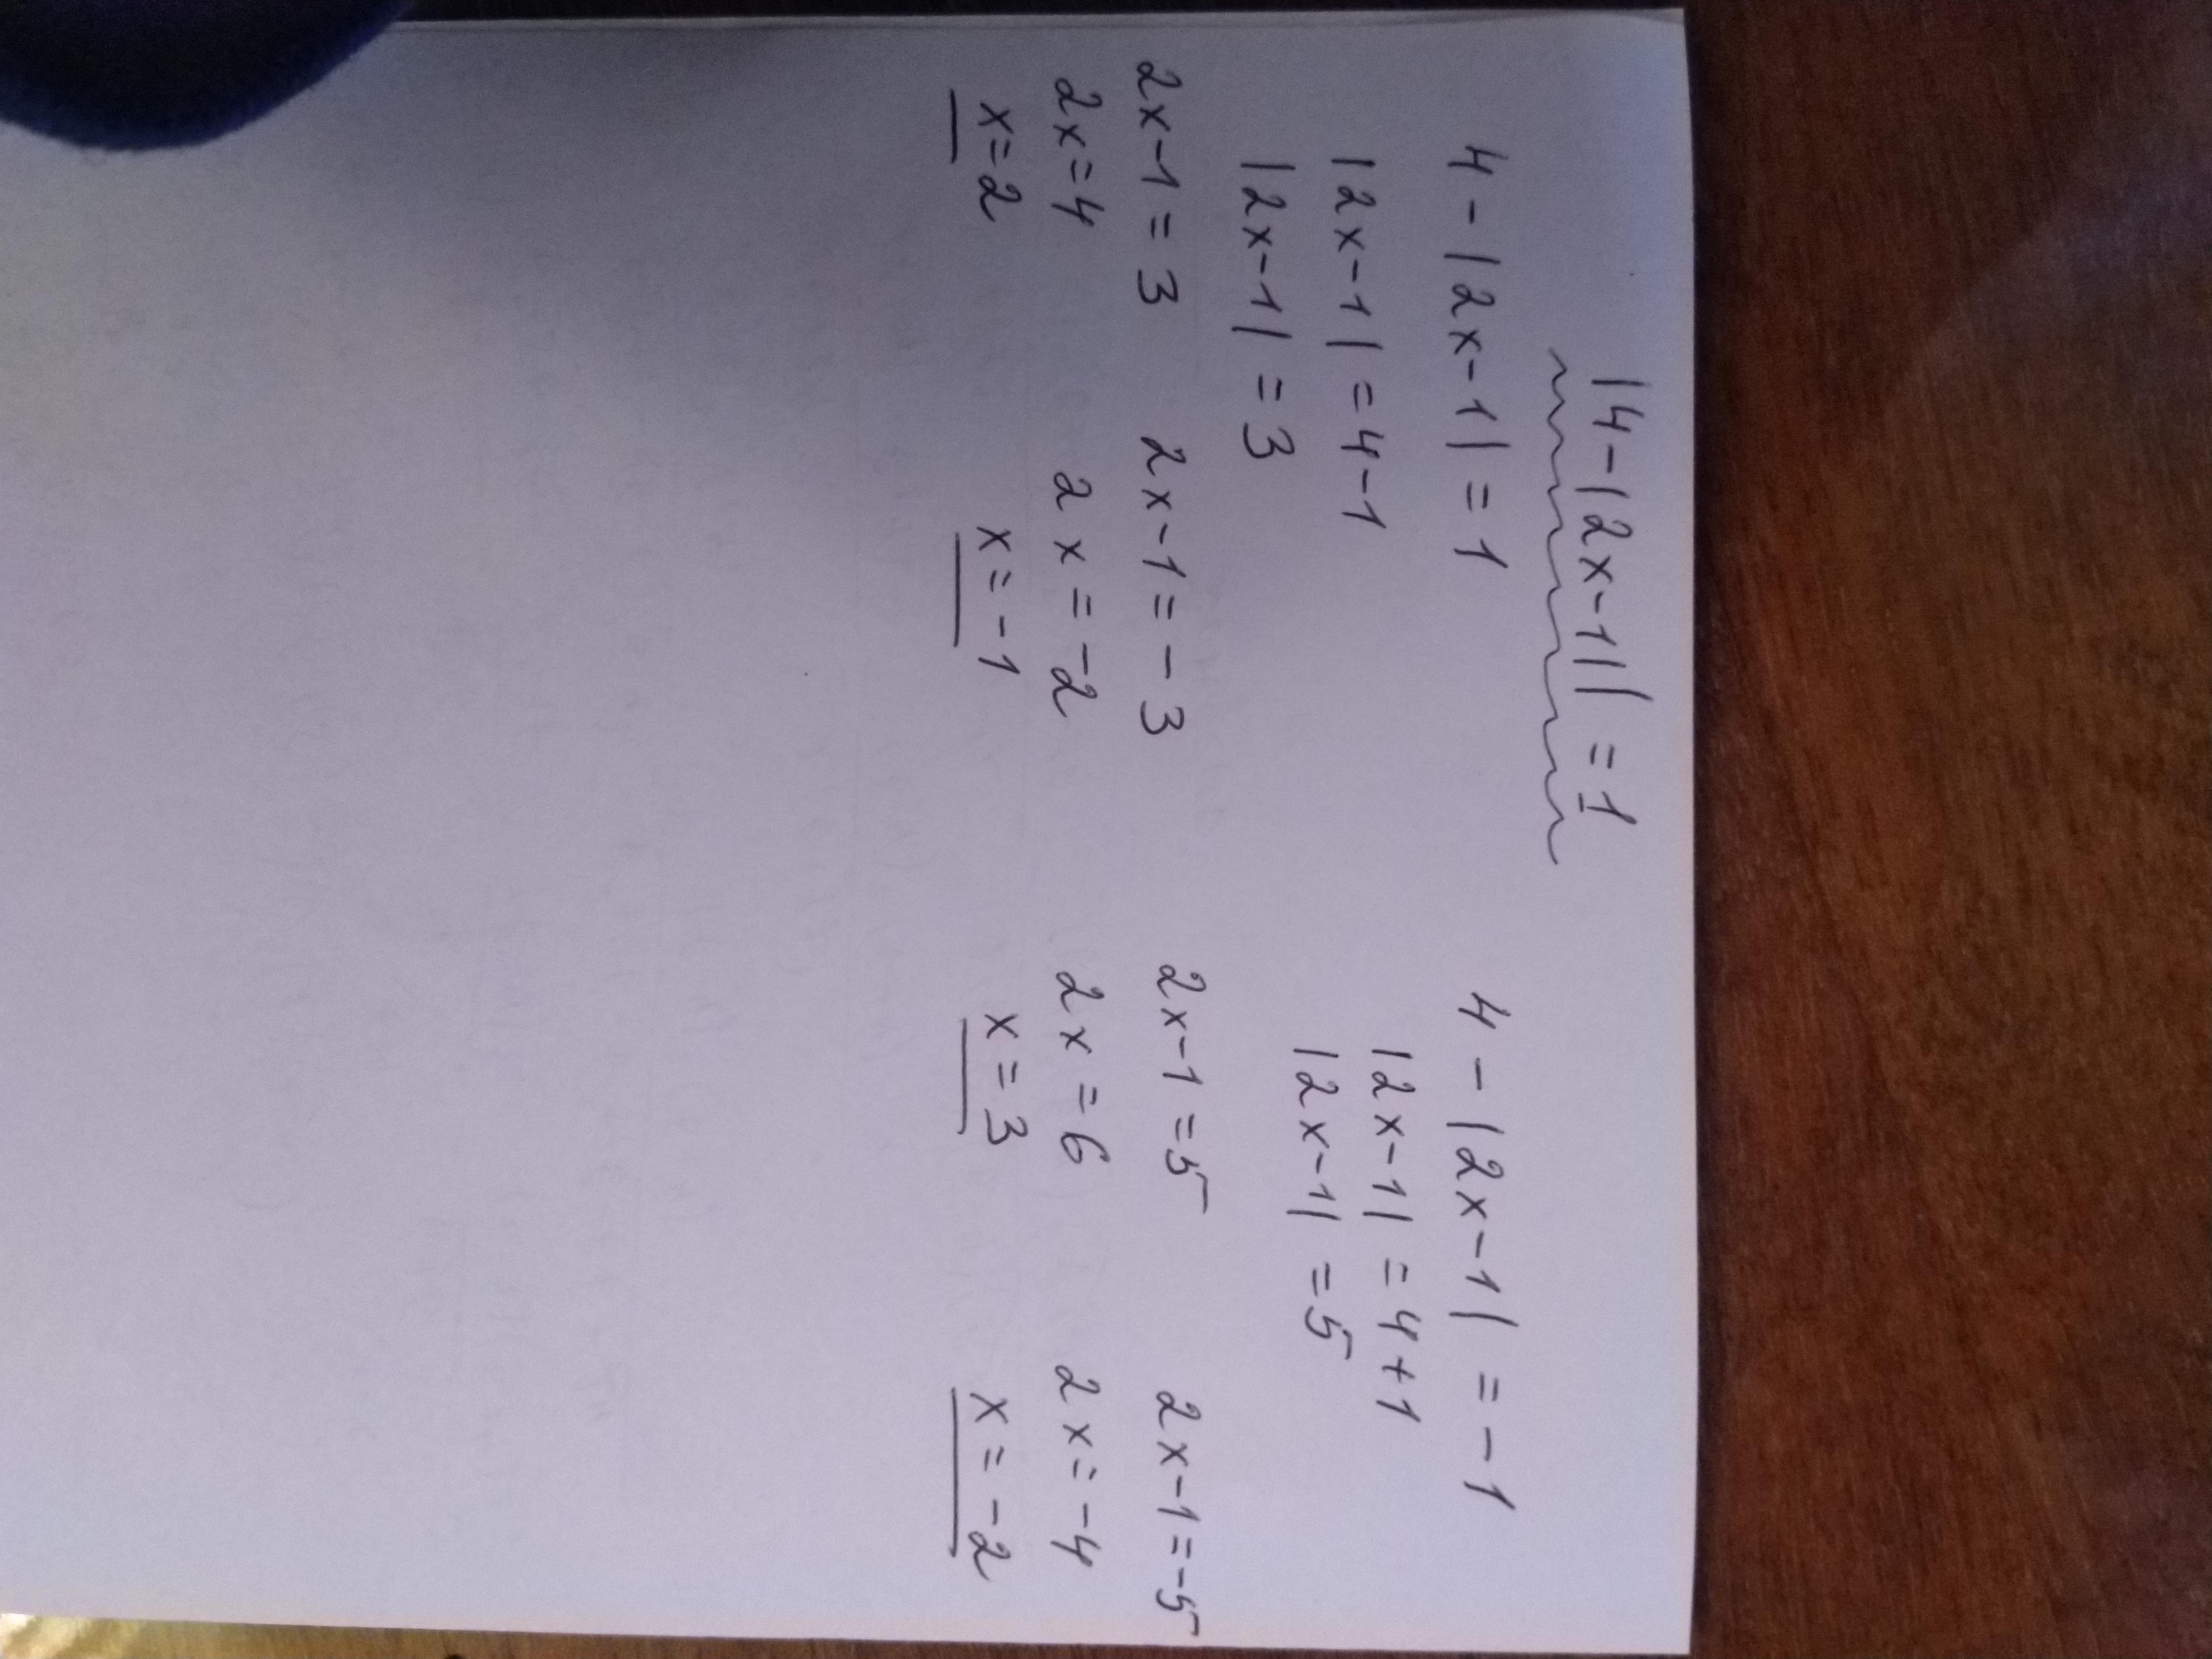 |4-|2x-1|| = 1
4 - |2x-1| = 1
|2x-1| = 4-1
|2x-1| = 3
2x-1 = 3
2x = 4
x = 2
2x-1 = -3
2x = -2
x = -1
4 - |2x-1| = -1
|2x-1| = 4+1
|2x-1| = 5
2x-1 = 5
2x = 6
x = 3
2x-1 = -5
2x = -4
x = -2